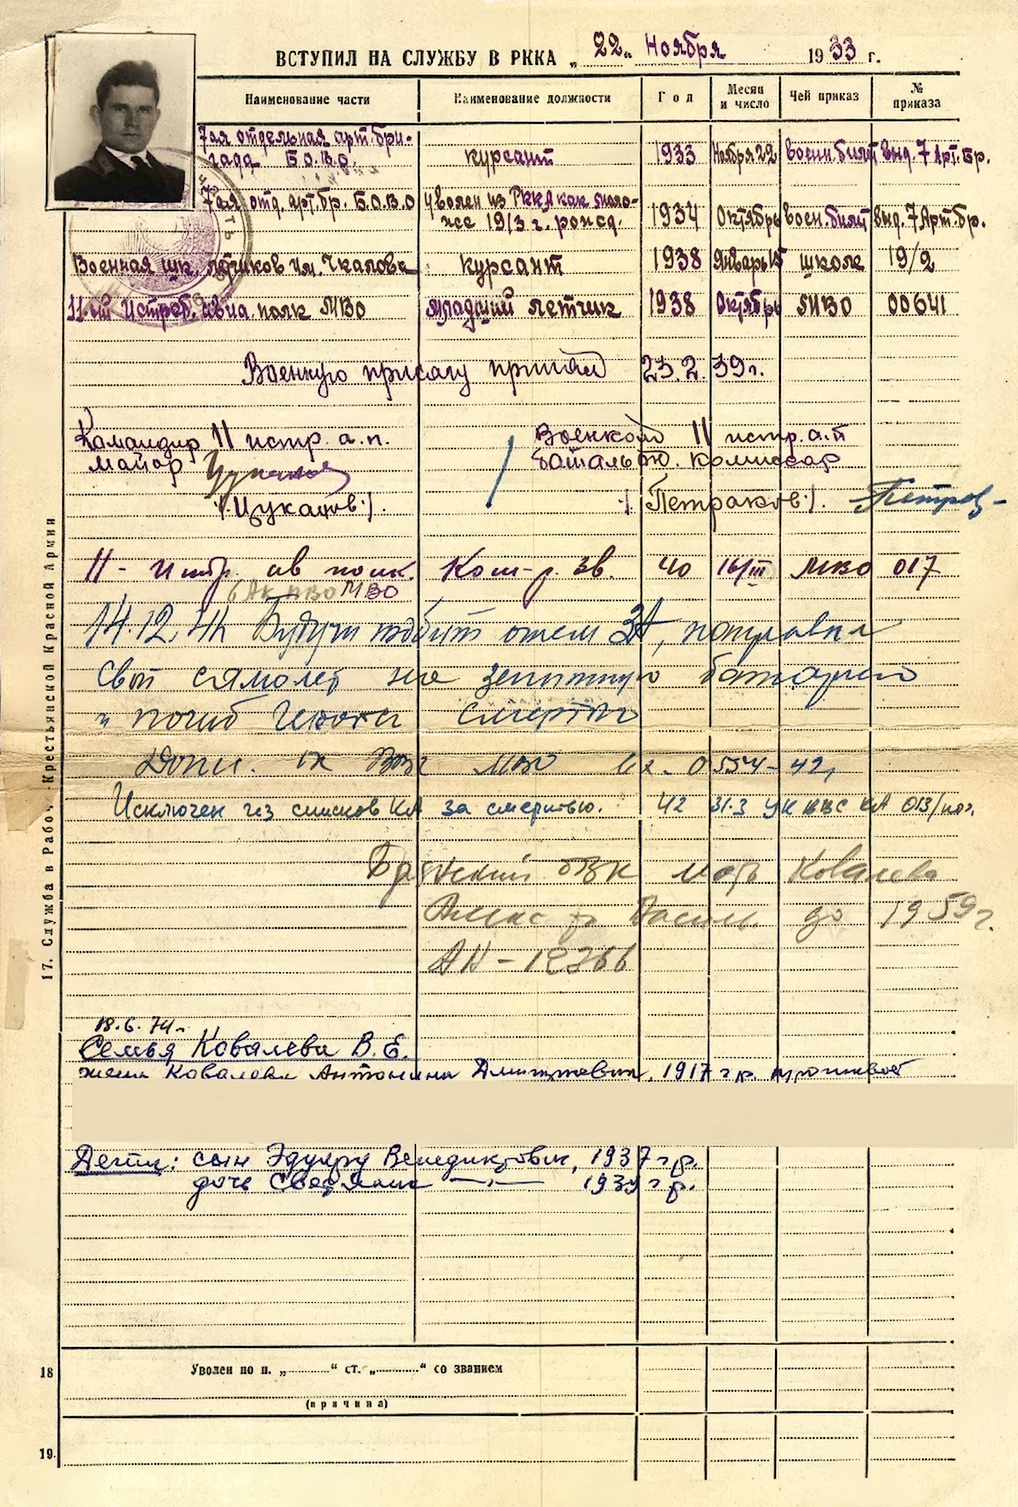 ВСТУПИЛ НА СЛУЖБУ В РККА „22„ Ноября 1933 г.
Наименование части Наименование должности Год Месяц и число Чей приказ № приказа
7ая отдельная арт. бри-
гада Б.О.В.О. курсант 1933 Ноября 22 воен. билет выд. 7 Арт. бр.
7ая отд. арт. бр. Б.О.В.О уволен из РККА как моло-
же 1913 г. рожд. 1934 Октябрь воен. билет выд. 7 Арт. бр.
Военная шк. лётчиков им. Чкалова курсант 1938 Январь 15 школе 19/2
11-ый Истреб. авиа. полк МВО Младший летчик 1938 Октябрь МВО 00641
Военную присягу принял 23.2.39 г.
Командир 11 истр. а.п. Военком 11 истр. а.п
майор батальон. комиссар
/Цукатов./ /Петраков./
11 - истр. ав полк. Ком-р. зв. 40 16/III МВО 017
6 АК ПВО МВО
14.12.41 Будучи подбит огнем ЗА, направил
свой самолет на зенитную батарею
и погиб смертью
Донс. ВВС МВО вх. 0554-42,
Исключен из списков КА за смертью. 42 31.3 УК ВВС КА 013/пог.
Бряжский ОВК мать Ковалева
до 1959 г.
АН-12366
18.6.74 г.
Семья Ковалева В.Е.
жена Ковалева Антонина Дмитриевна, 1917 г.р. проживает
Дети: сын Эдуард Венедиктович, 1937 г.р.
дочь Светлана —„— 1939 г.р.
17. Служба в Рабоче-Крестьянской Красной Армии
18 Уволен по п. „.........“ ст. „.........“ со званием
(причина)
19.